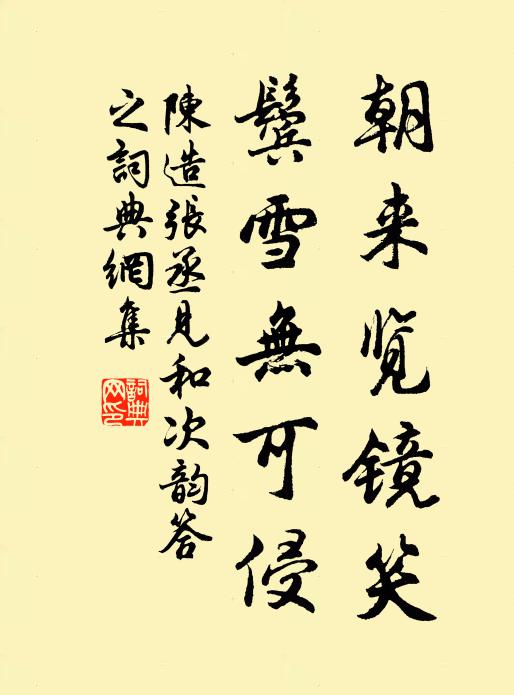 朝来览镜笑
鬓雪無可侵
陳造張丞見和次韵答
之詞典網集
詞典网印